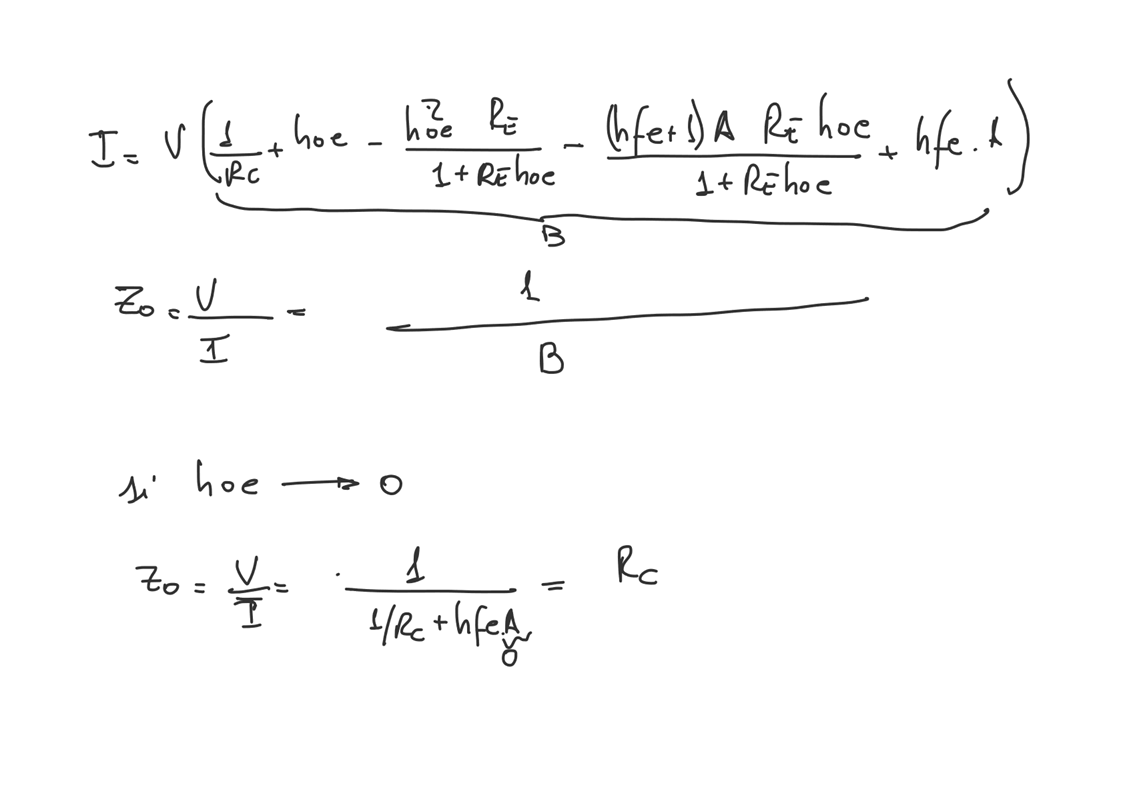 I = V (1/RC + hoe - hoe² RE / 1 + RE hoe - (hfe+1) A RE hoe / 1 + RE hoe + hfe . A)
B
Zo = V / I = 1 / B
si hoe → 0
Zo = V / I = 1 / 1/RC + hfe.A = RC
0